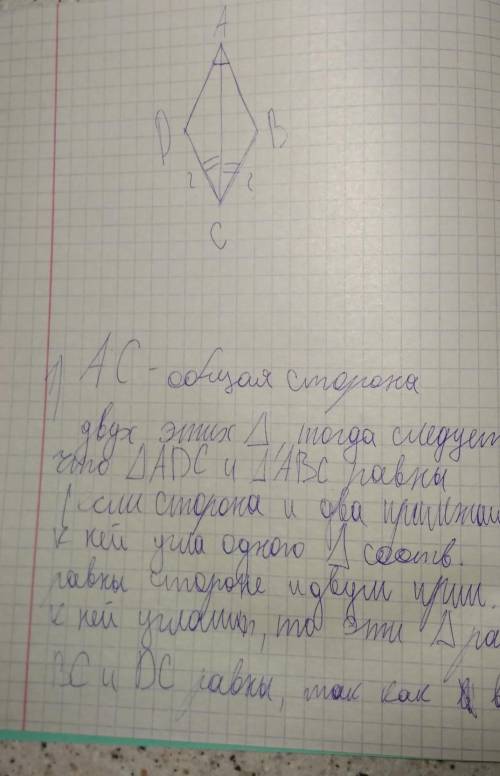 A
D B
2 2
C
1) AC - общая сторона
двух этих Δ, тогда следует
что ΔADC и ΔABC равны
Если сторона и два
к ней угла одного Δ соотв.
равны стороне и двум прил.
к ней углам, то эти Δ ра
BC и DC равны, так как в